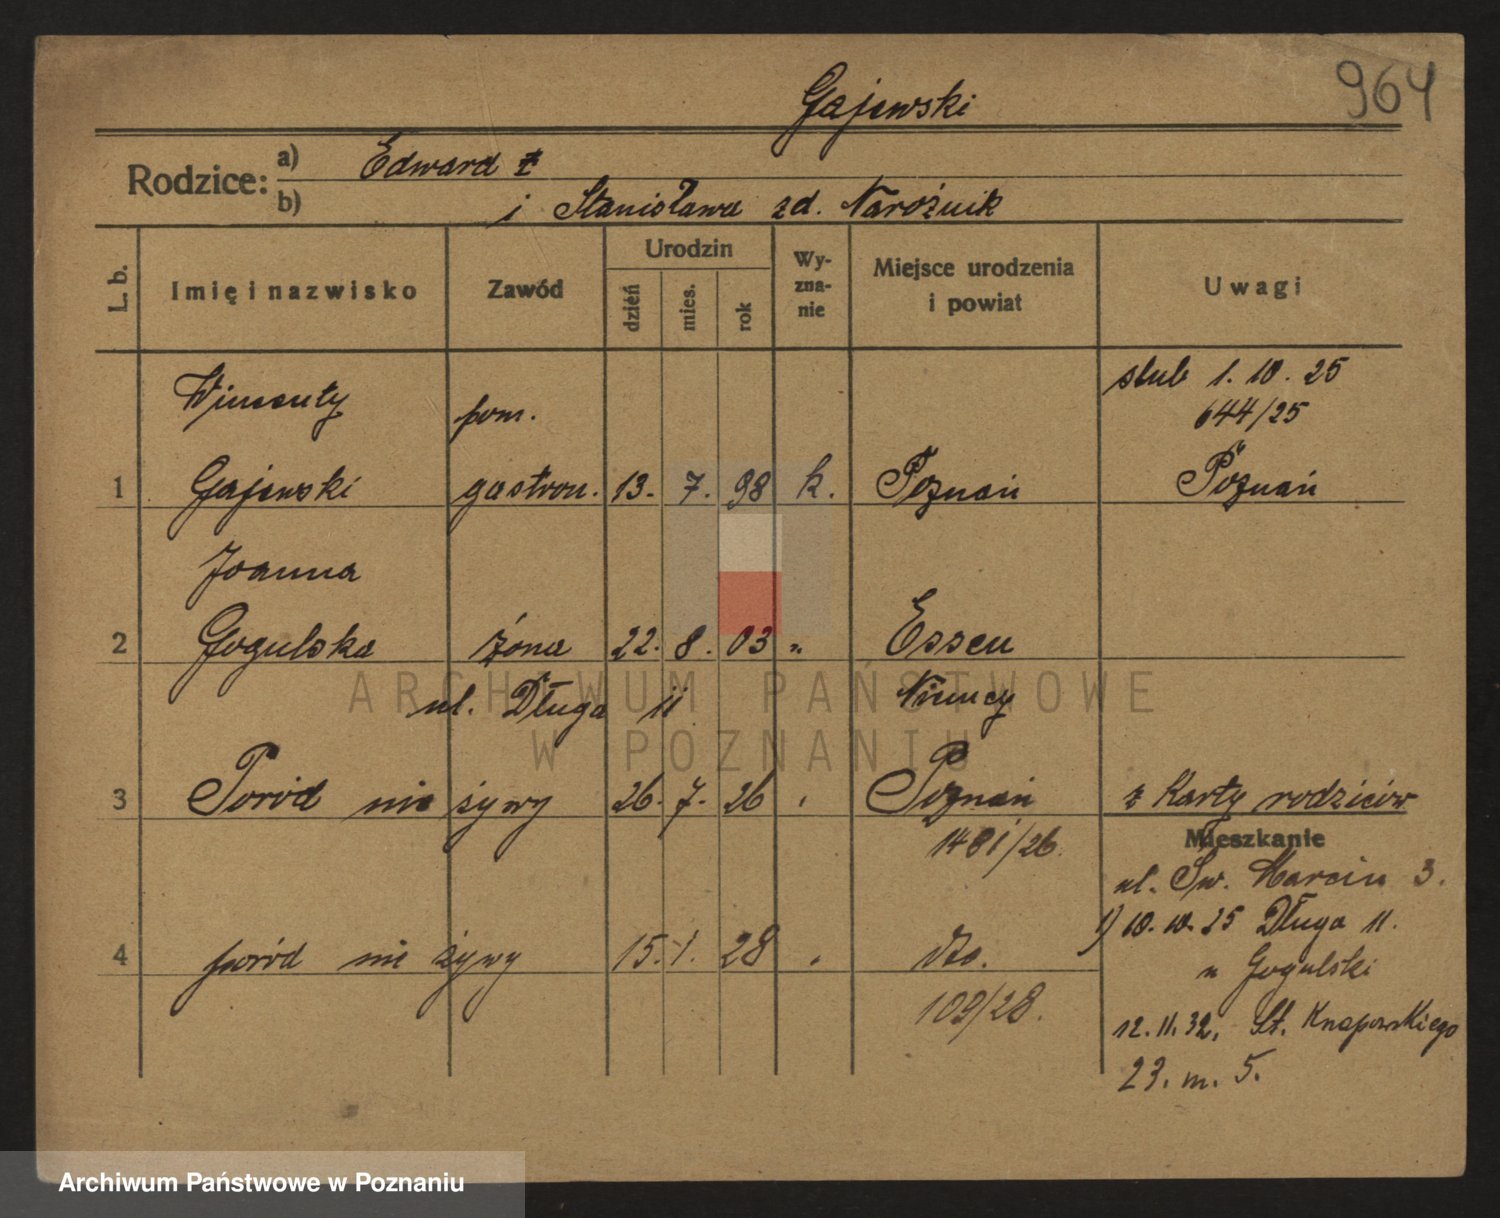 Gajewski
964
Rodzice:
a) Edward z
b) i Stanisława zd. Narożnik
L. b.
Imię i nazwisko
Zawód
Urodzin
dzień
mies.
rok
Wy-
zna-
nie
Miejsce urodzenia
i powiat
Uwagi
Wincenty pom. slub 1. 10. 25
644/25
1 Gajewski gastron. 13. 7. 98 k. Poznań Poznań
Joanna
2 Gogulska żona 22. 8. 03 " Essen
ul. Długa 11 Niemcy
3 Poród nie żywy 26. 7. 26 Poznań z Karty rodziców
1481/26.
Mieszkanie
ul. Św. Marcin 3.
1) 10. 10. 25 Długa 11.
u Gogulski
4 poród nie żywy 15. 1. 28 dto.
109/28.
12. 11. 32, St. Knapowskiego
23. m. 5.
ARCHIWUM PAŃSTWOWE
W POZNANIU
Archiwum Państwowe w Poznaniu